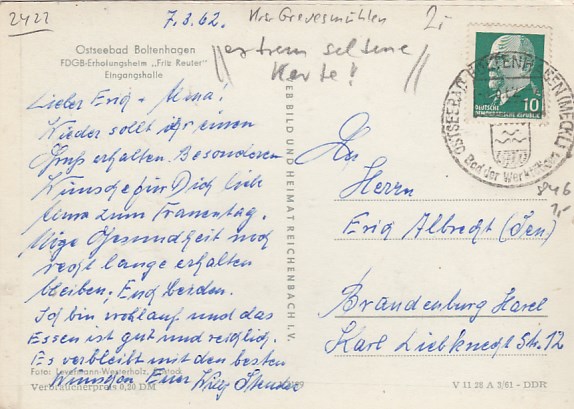 2422
7.3.62.
Krs. Grevesmühlen
2,-
Ostseebad Boltenhagen
FDGB-Erholungsheim „Fritz Reuter"
Eingangshalle
"extrem seltene
Karte!"
Lieber Erich + Mima!
Wieder sollt ihr einen
Gruß erhalten. Besonderen
Wünsche für Dich liebe
Mima zum Frauentag.
Möge Gesundheit noch
recht lange erhalten
bleiben, Euch beiden.
Ich bin wohlauf und das
Essen ist gut und reichlich.
Es verbleibt mit den besten
Wünschen Euer Willy Stender
Foto: Lovermann-Westerholz, Rostock
Verbraucherpreis 0,20 DM
VEB BILD UND HEIMAT REICHENBACH I. V.
DEUTSCHE
DEMOKRATISCHE REPUBLIK
10
OSTSEEBAD BOLTENHAGEN (MECKL)
Bad der Werktätigen
An
Herrn
Erich Albrecht (Sen)
Brandenburg Havel
Karl Liebknecht Str. 12
V 11 28 A 3/61 - DDR